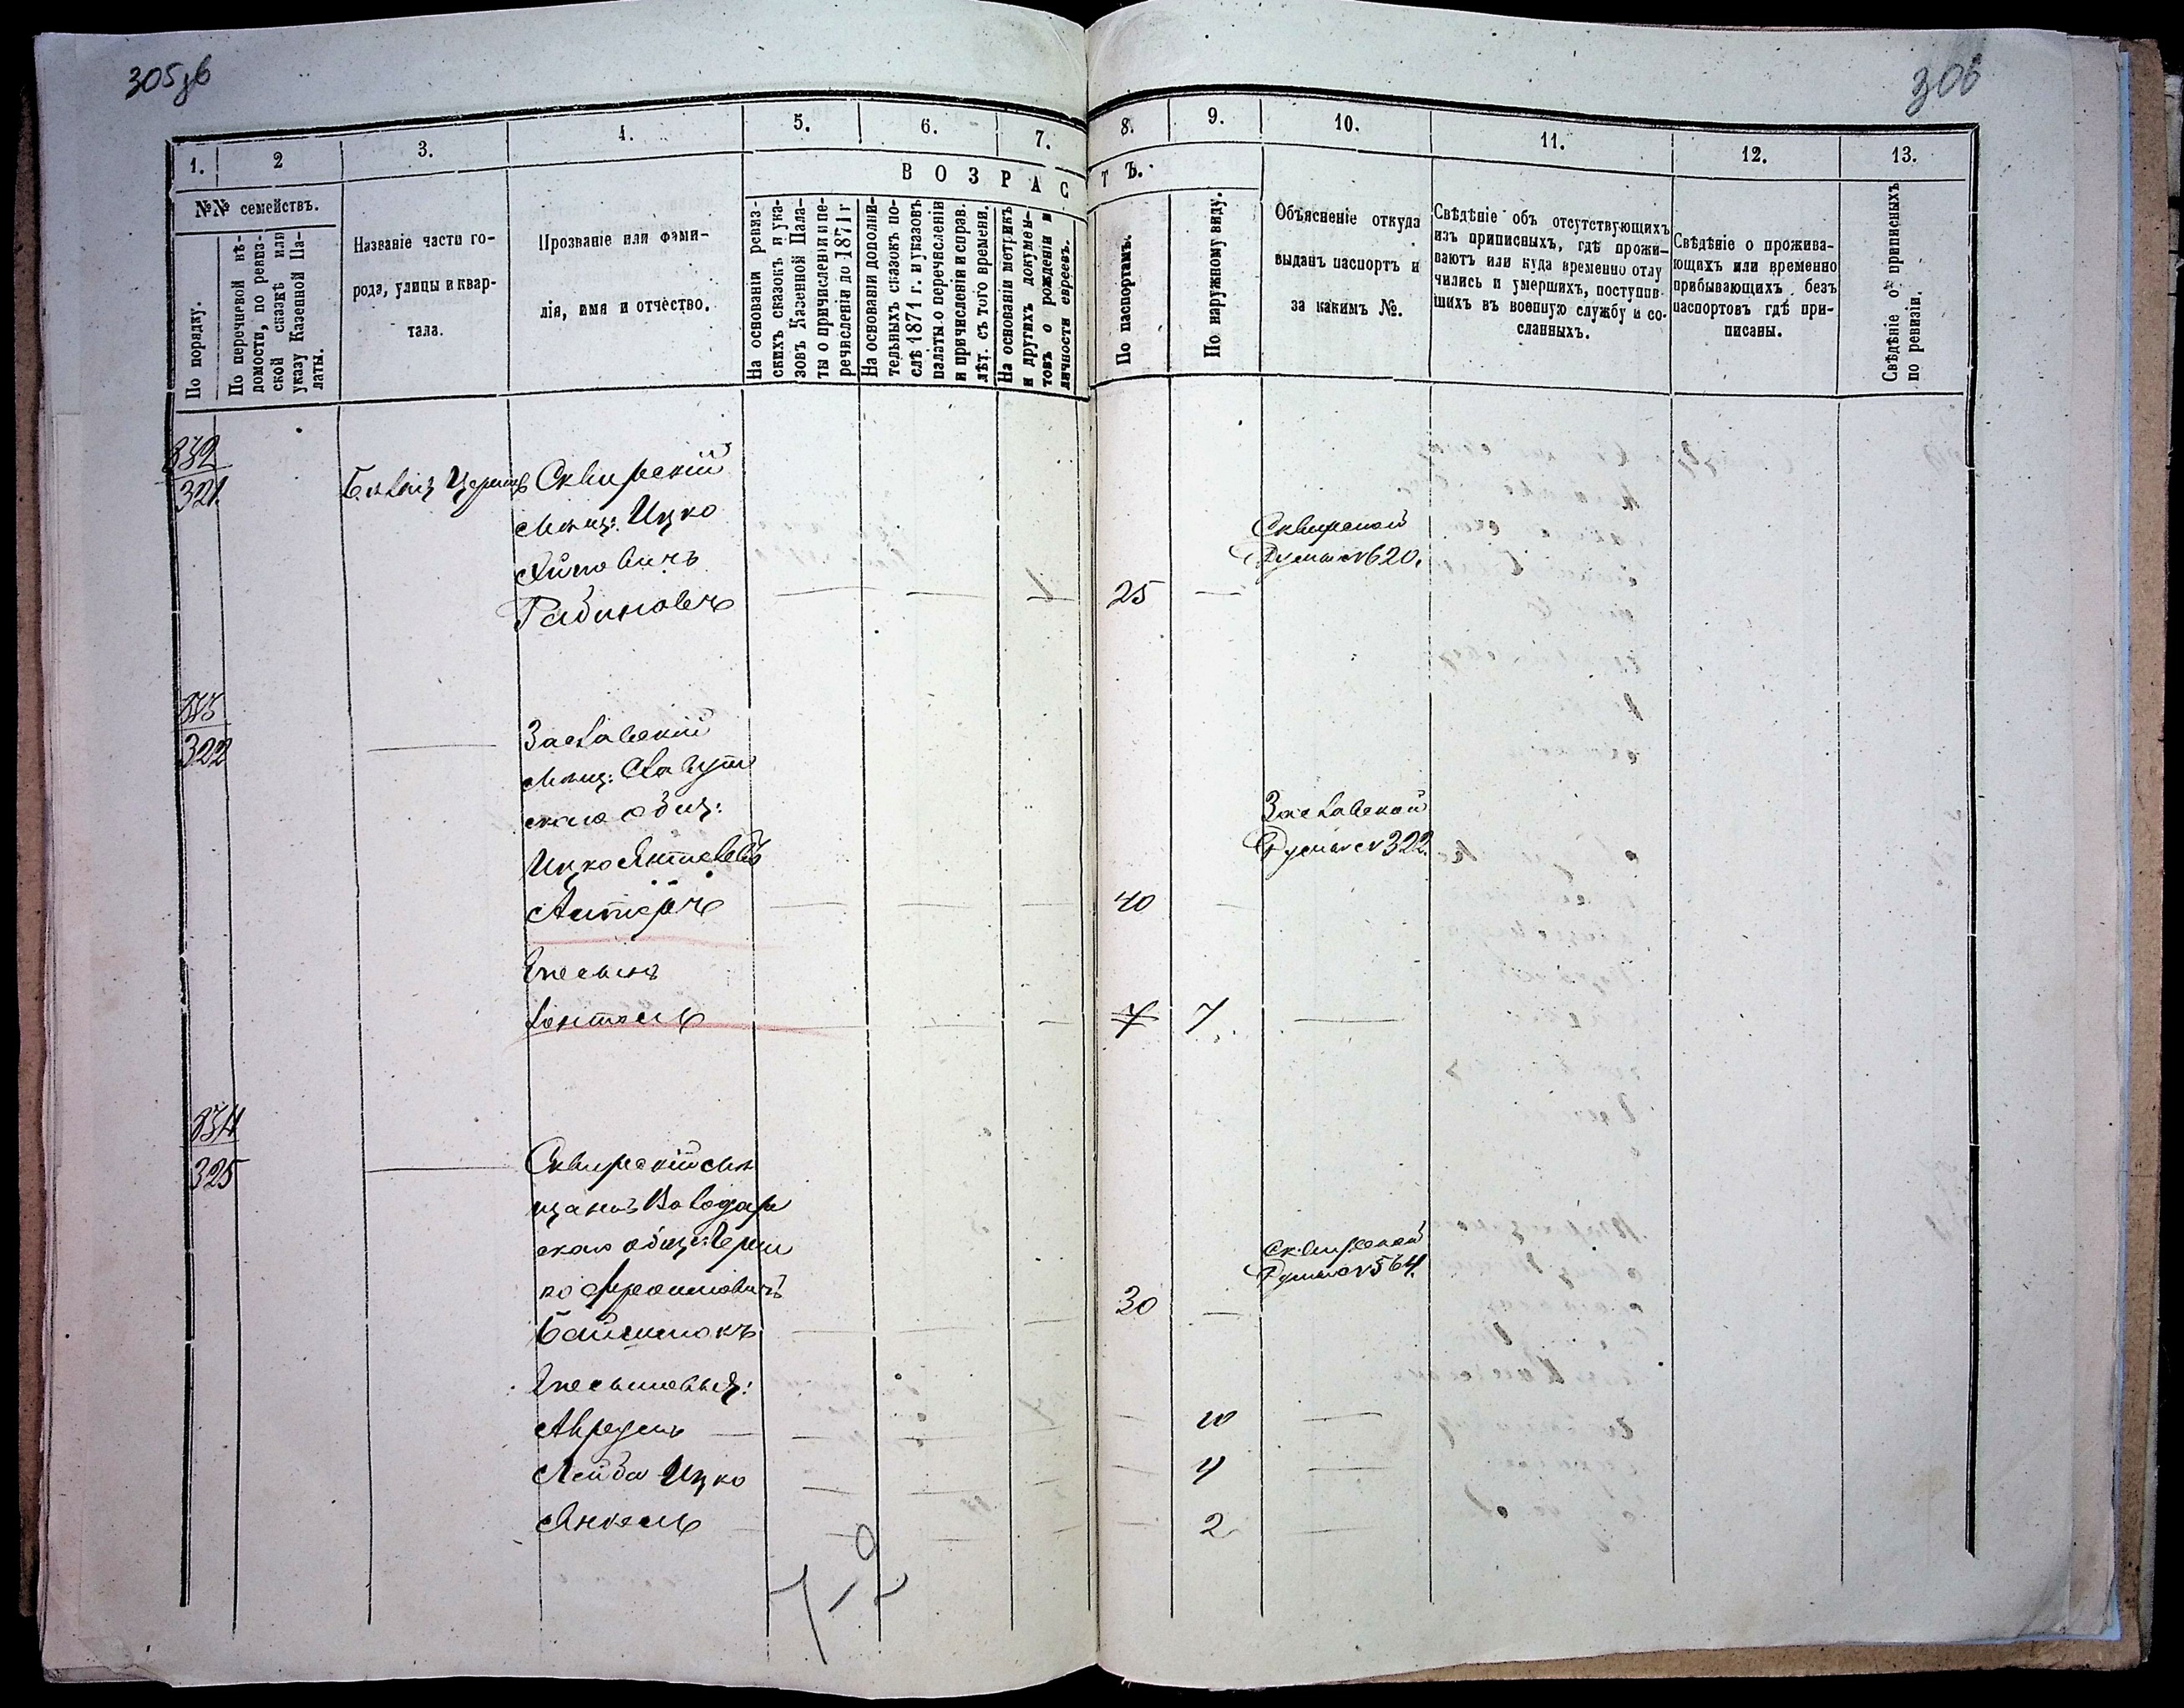 305зв
306
1.
2
3.
4.
5.
6.
7.
8.
9.
10.
11.
12.
13.
№№ семействъ.
По порядку.
По перечневой вѣ-
домости, по ревиз-
ской сказкѣ или
указу Казенной Па-
латы.
Названіе части го-
рода, улицы и квар-
тала.
Прозваніе или фами-
лія, имя и отчество.
ВОЗРАСТЪ.
На основаніи ревиз-
скихъ сказокъ и ука-
зовъ Казенной Пала-
ты о причисленіи и пе-
речисленіи до 1871 г
На основаніи дополни-
тельныхъ сказокъ по-
слѣ 1871 г. и указовъ
палаты о перечисленіи
и причисленіи и справ.
лѣт. съ того времени.
На основаніи метрикъ
и другихъ докумен-
товъ о рожденіи и
личности евреевъ.
По паспортамъ.
По наружному виду.
Объясненіе откуда
выданъ паспортъ и
за какимъ №.
Свѣдѣніе объ отсутствующихъ
изъ приписныхъ, гдѣ прожи-
ваютъ или куда временно отлу
чились и умершихъ, поступив-
шихъ въ военную службу и со-
сланныхъ.
Свѣдѣніе о прожива-
ющихъ или временно
прибывающихъ безъ
паспортовъ гдѣ при-
писаны.
Свѣдѣніе о приписныхъ
по ревизіи.
832
321.
Сквирскій
мѣщ: Ицко
Рабиновъ
25
Сквирской
Думы №620.
322
Заславскій
мѣщ: Славут
скаго общ:
Ицко
Аптеръ
40
Заславской
Думы №322.
Его сынъ
7 7
834
325
Сквирскій мѣ
щанинъ Володар
скаго общ:
30
Сквирской
Думы №564.
Его сыновья:
Аврумъ 10
Лейба Ицко 4
Янкель 2
7-2